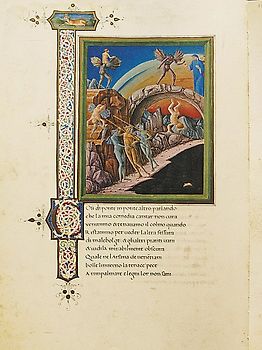 COsi di ponte in ponte altro parlando
che la mia comedia cantar non cura
venimmo & tenavamo il colmo quando
ristemmo per veder laltra fessura
di malebolge & glialtri pianti vani
& vidila mirabilmente obscura
Quale ne larsena de venetiani
bolle linverno la tenace pece
a rimpalmare e legni lor non sani